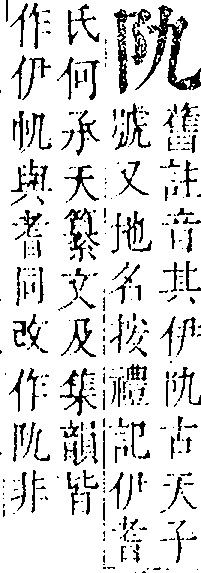 阢
舊註音其伊阢古天子
號又地名按禮記伊耆
氏何承天纂文及集韻皆
作伊帆與耆同改作阢非